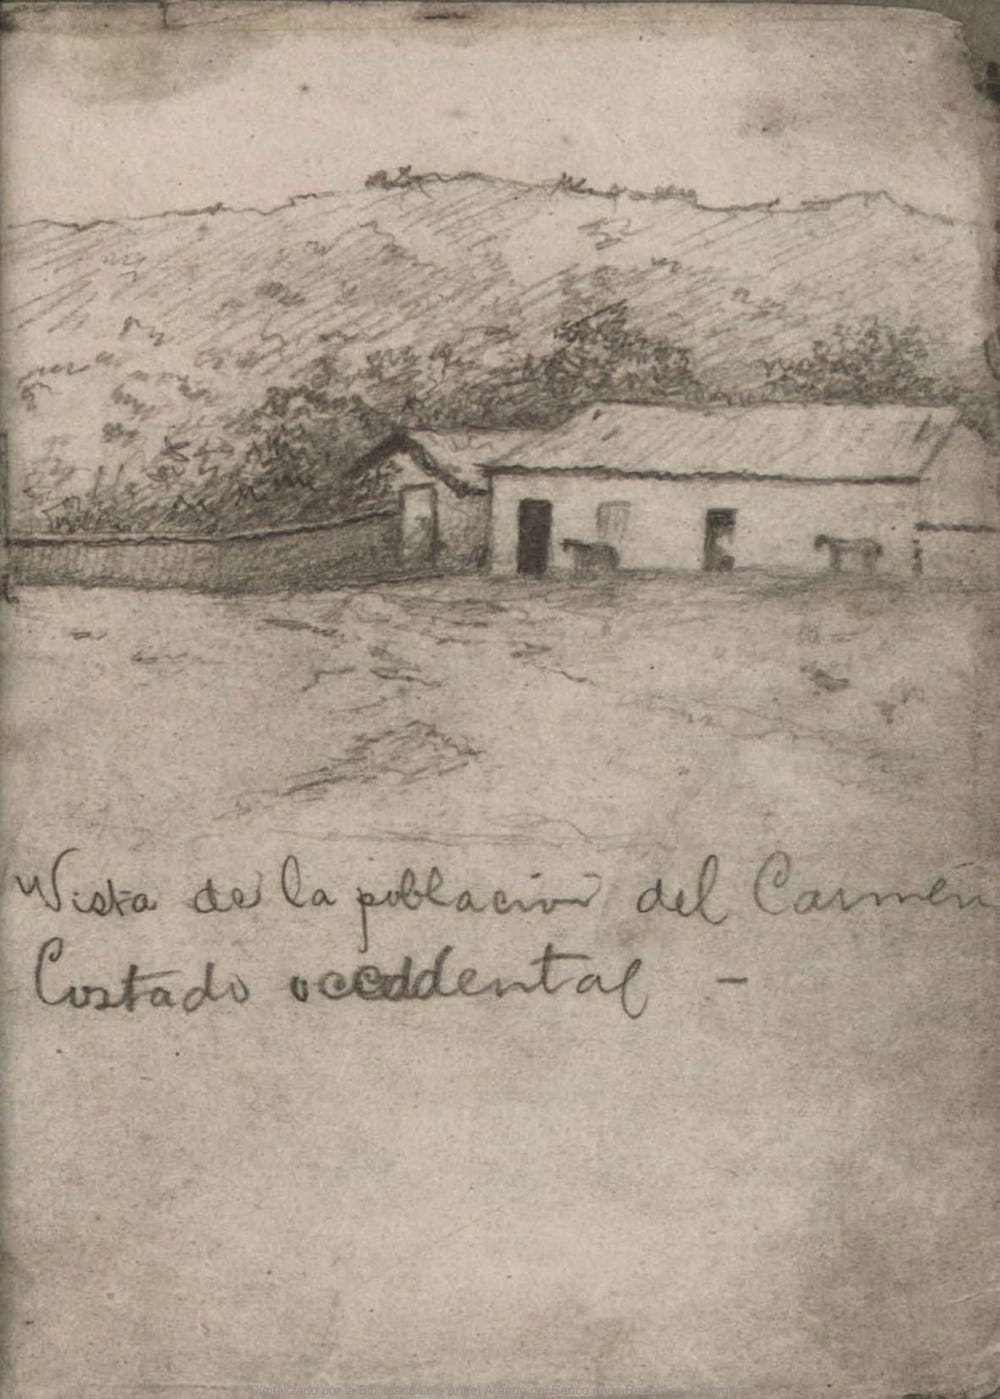 Vista de la población del Carmen
Costado occidental –
Digitalizado por la Biblioteca Luis Ángel Arango del Banco de la República, Colombia